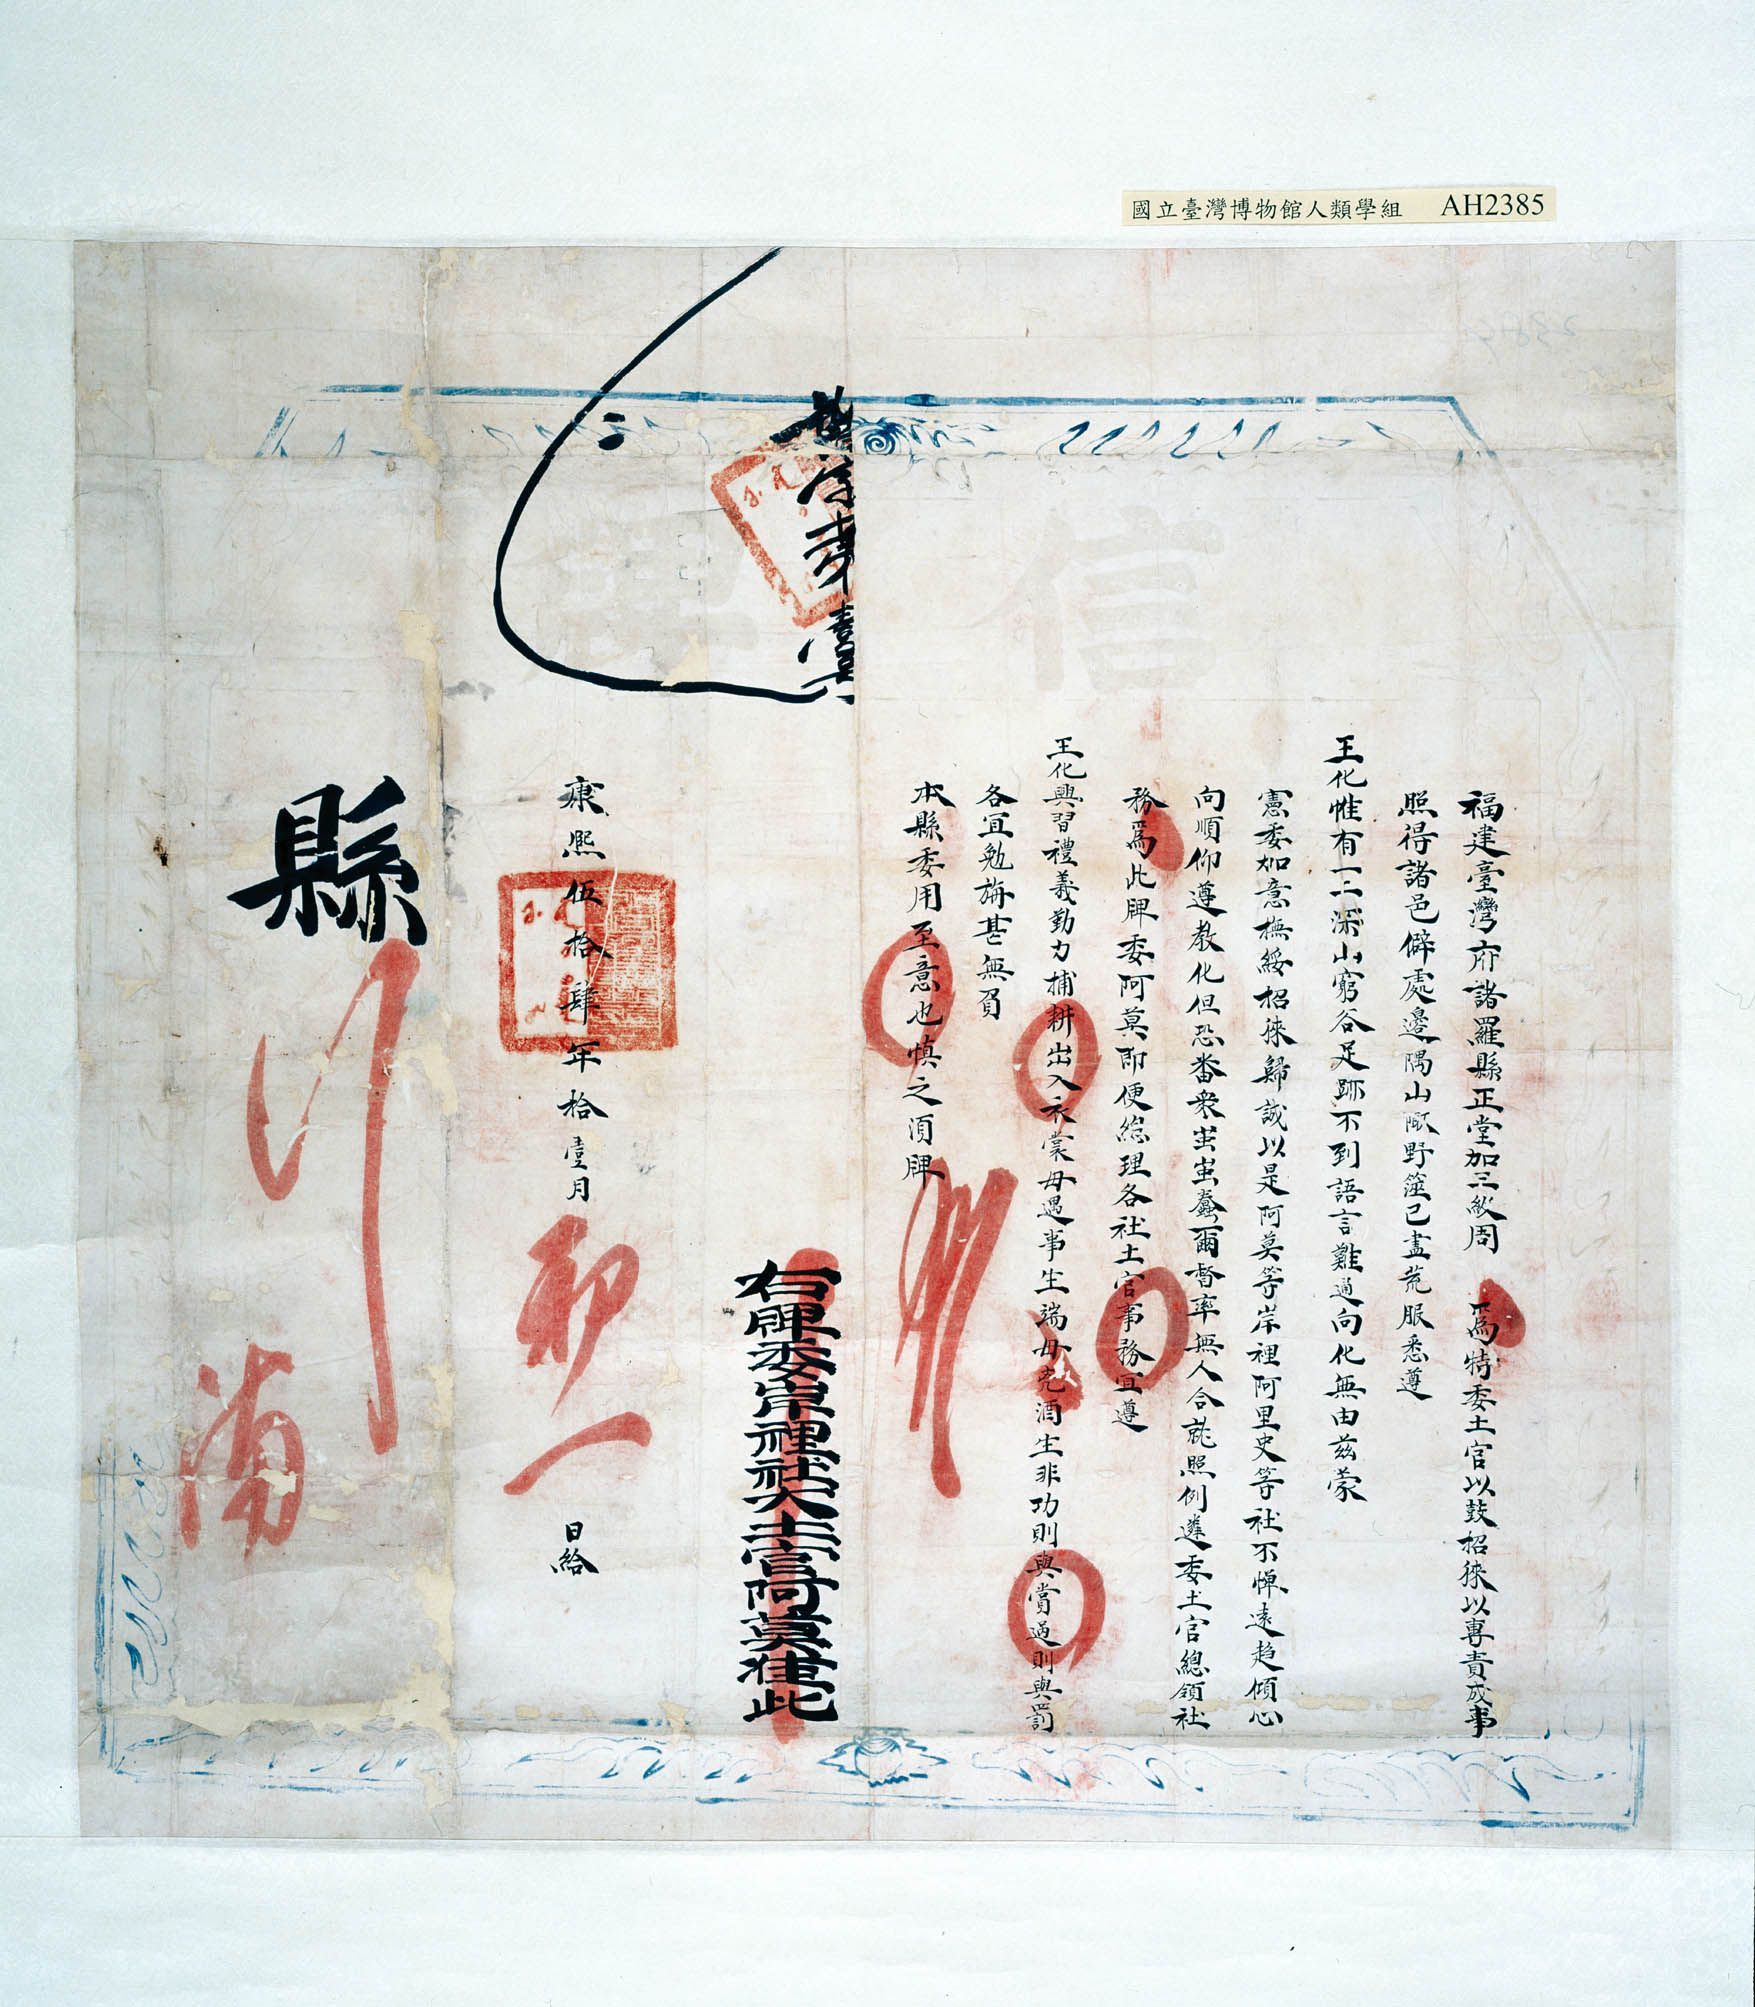 國立臺灣博物館人類學組 AH2385
信牌
福建臺灣府諸羅縣正堂加三級周 爲特委土官以鼓招徠以專責成事
照得諸邑僻處邊隅山陬野篴已盡荒服悉遵
王化惟有一二深山窮谷足跡不到語言難通向化無由茲蒙
憲委加意撫綏招徠歸誠以是阿莫等岸裡阿里史等社不憚遠趋傾心
向順仰遵教化但恐番衆蚩蚩蠢爾督率無人合就照例遴委土官總領社
務爲此牌委阿莫即便總理各社土官事務宜遵
王化興習禮義勤力捕耕出入衣裳毋遇事生端毋兇酒生非功則與賞過則與罰
各宜勉旃甚無負
本縣委用至意也慎之須牌
右牌委岸裡社大土官阿莫准此
康熙伍拾肆年拾壹月 初一 日給
縣 行